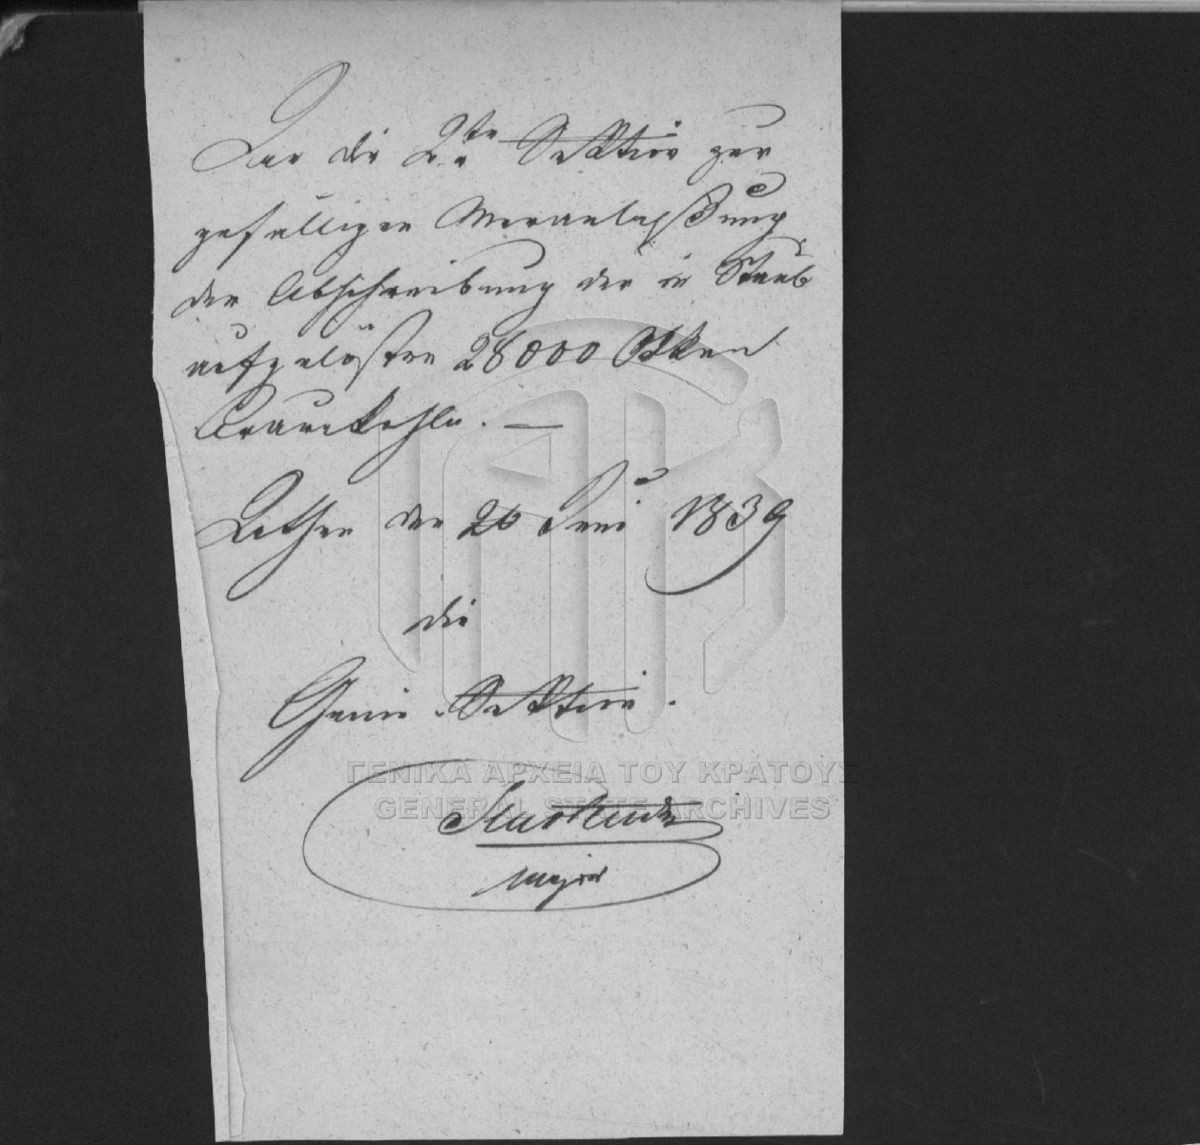 An die 2te Sektion zur
gefälligen Veranlaßung
der Abschreibung der in Staub
aufgelösten 28000 Okken
Braunkohlen. —
Athen den 20 Juni 1839
die
Genie Sektion.
Major
ΓΕΝΙΚΑ ΑΡΧΕΙΑ ΤΟΥ ΚΡΑΤΟΥΣ
GENERAL STATE ARCHIVES